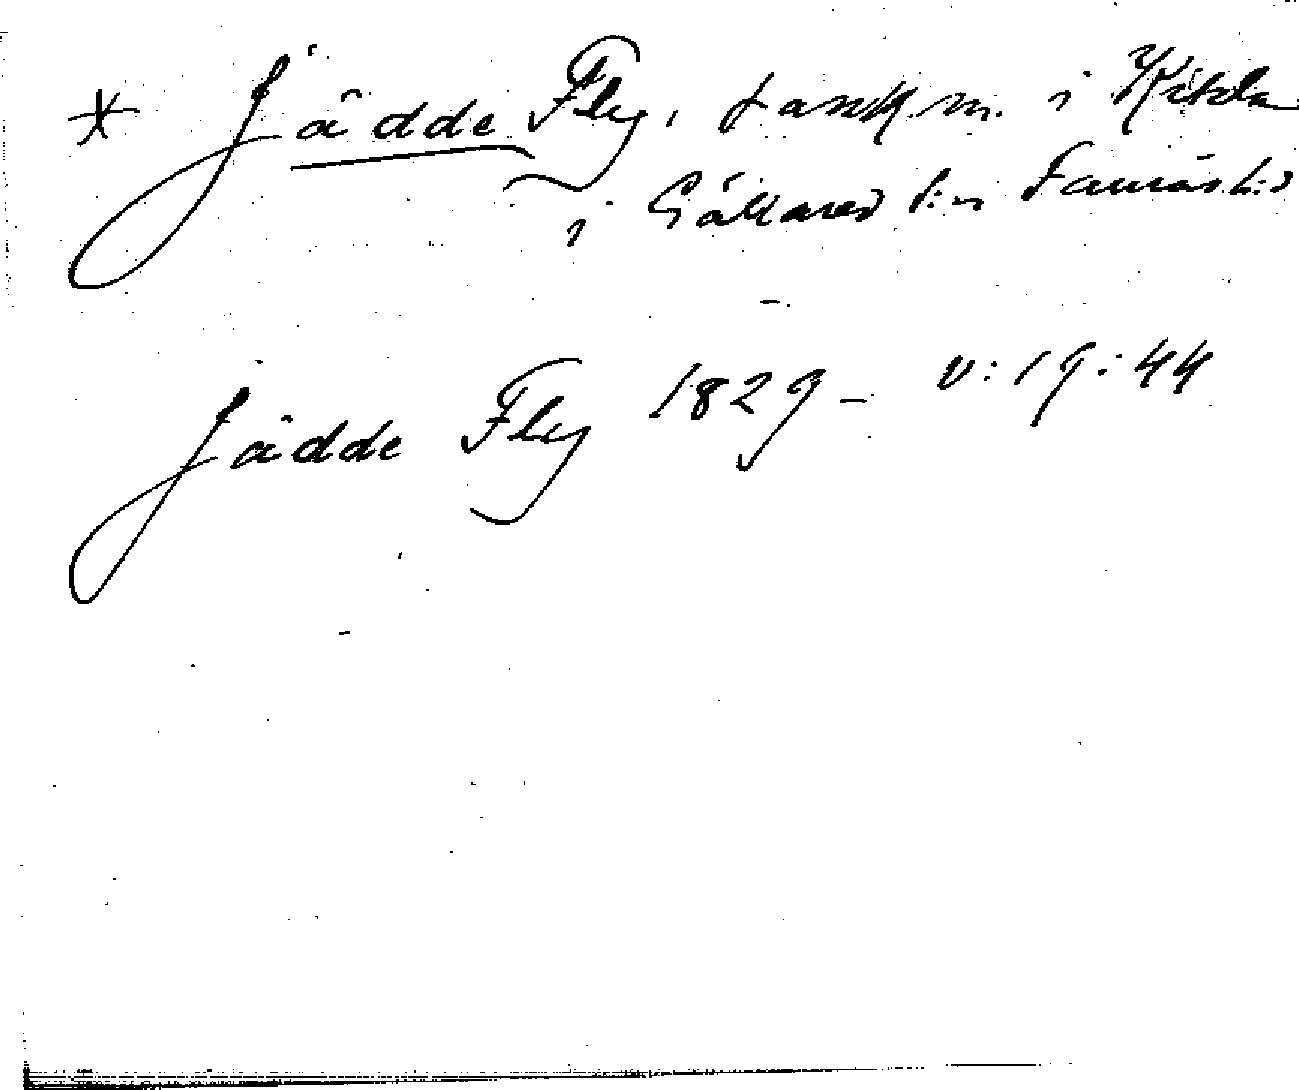 * Jädde Fly, sankm. i Kikla
i Gällared s:n Famäs h:d
Jädde Fly 1829 – v: 19: 44